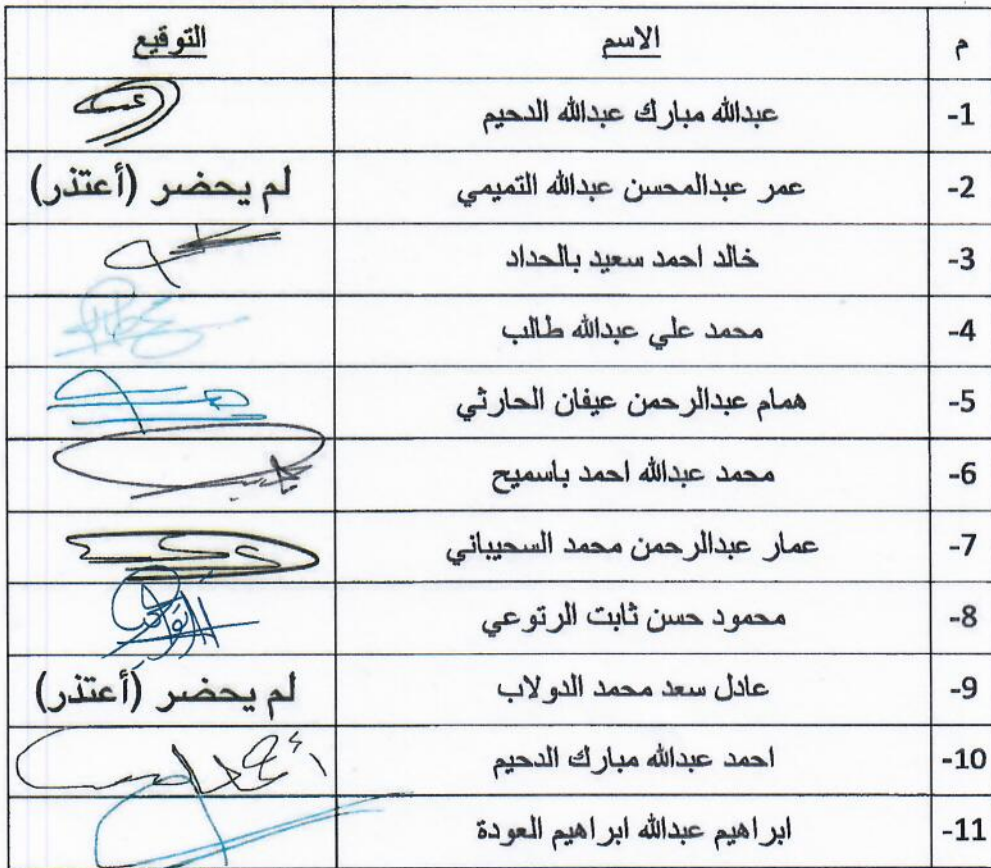 م الاسم التوقيع
1- عبدالله مبارك عبدالله الدحيم
2- عمر عبدالمحسن عبدالله التميمي لم يحضر (أعتذر)
3- خالد احمد سعيد بالحداد
4- محمد علي عبدالله طالب
5- همام عبدالرحمن عيفان الحارثي
6- محمد عبدالله احمد باسميح
7- عمار عبدالرحمن محمد السحيباني
8- محمود حسن ثابت الرتوعي
9- عادل سعد محمد الدولاب لم يحضر (أعتذر)
10- احمد عبدالله مبارك الدحيم
11- ابراهيم عبدالله ابراهيم العودة